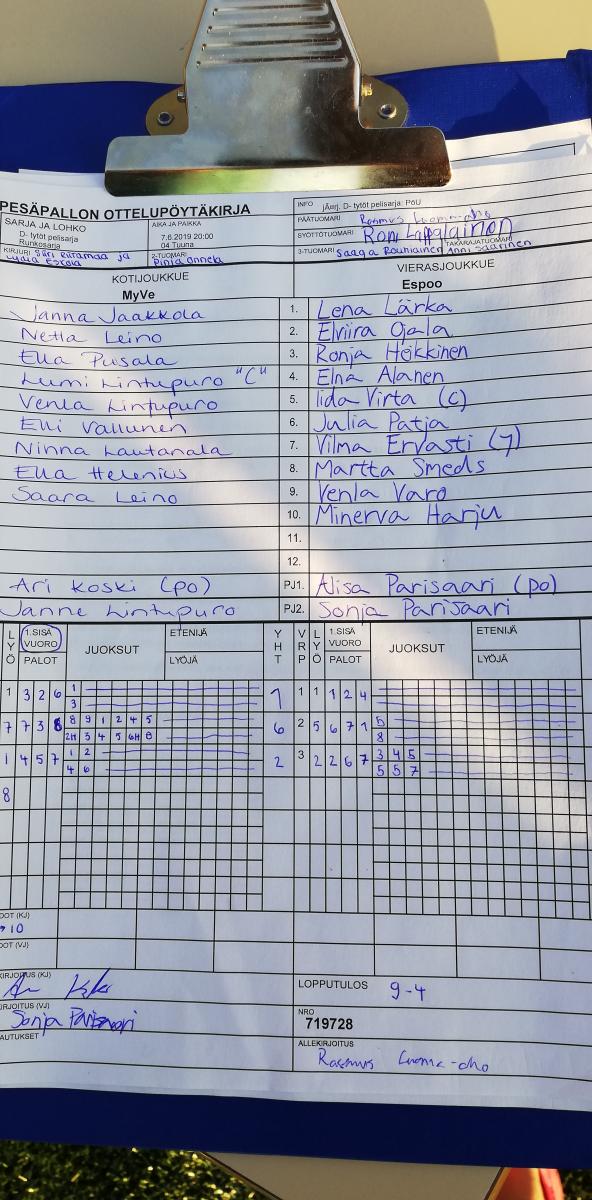 PESÄPALLON OTTELUPÖYTÄKIRJA
INFO jÄarj. D- tytöt pelisarja: PöU
SARJA JA LOHKO
D- tytöt pelisarja
Runkosarja
AIKA JA PAIKKA
7.6.2019 20:00
04 Tuuna
PÄÄTUOMARI Rasmus Luoma-aho
SYÖTTÖTUOMARI Roni Lappalainen
TAKARAJATUOMARI Anni Saarinen
KIRJURI Siiri Riitamaa ja
2-TUOMARI Pinja Onnela
3-TUOMARI Saaga Rouhiainen
KOTIJOUKKUE
MyVe
VIERASJOUKKUE
Espoo
Janna Jaakkola 1. Lena Lärka
Netta Leino 2. Elviira Ojala
Ella Pusala 3. Ronja Heikkinen
Lumi Lintupuro "C" 4. Elna Alanen
Venla Lintupuro 5. Iida Virta (C)
Elli Vallunen 6. Julia Patja
Ninna Lautanala 7. Vilma Ervasti (J)
Ella Helenius 8. Martta Smeds
Saara Leino 9. Venla Varo
10. Minerva Harju
11.
12.
Ari Koski (po) PJ1. Alisa Parisaari (po)
Janne Lintupuro PJ2. Sonja Parisaari
LYÖ 1.SISÄ VUORO PALOT JUOKSUT ETENIJÄ LYÖJÄ YHT VRP LYÖ 1.SISÄ VUORO PALOT JUOKSUT ETENIJÄ LYÖJÄ
1 3 2 6 1 1 1 1 2 4
3
7 7 3 8 8 9 1 2 4 5 6 2 5 6 7 1 5
2H 3 4 5 6H 8 8
1 4 5 7 1 2 2 3 2 2 6 7 3 4 5
4 6 5 5 7
8
DOT (KJ)
10
DOT (VJ)
KIRJOITUS (KJ)
LOPPUTULOS 9-4
IRJOITUS (VJ)
Sonja Parisaari
NRO
719728
AUTUKSET
ALLEKIRJOITUS
Rasmus Luoma-aho